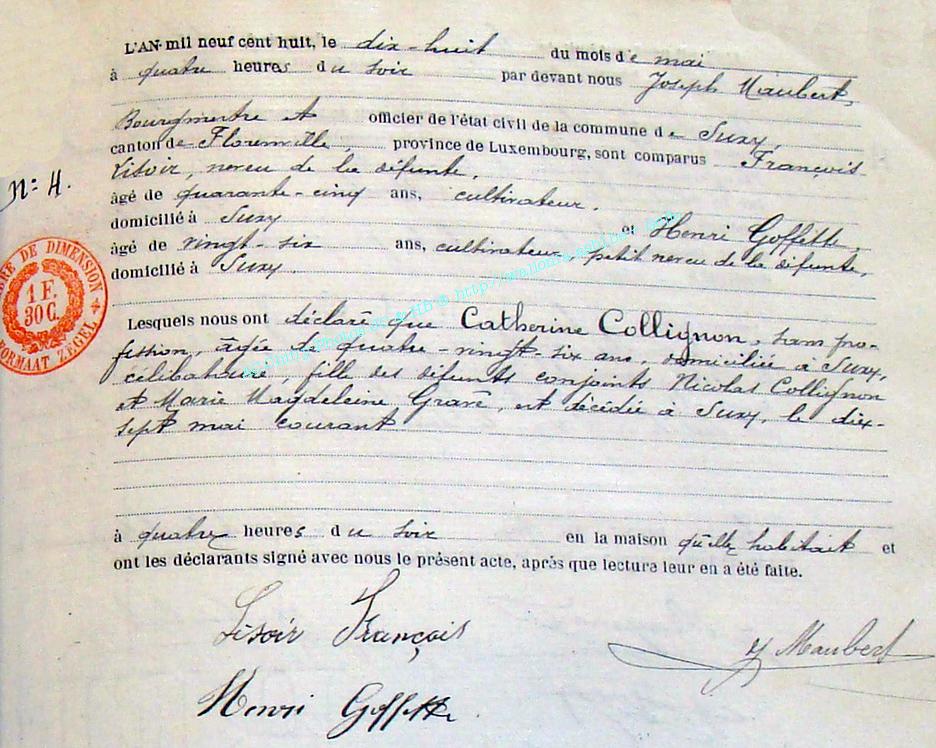 L'AN mil neuf cent huit, le dix-huit du mois de mai
à quatre heures du soir par devant nous Joseph Maubert,
Bourgmestre et officier de l'état civil de la commune de Suxy,
canton de Florenville, province de Luxembourg, sont comparus François
Lisoir, neveu de la défunte,
N° 4.
âgé de quarante-cinq ans, cultivateur,
domicilié à Suxy et Henri Goffette,
âgé de vingt-six ans, cultivateur, petit neveu de la défunte,
domicilié à Suxy.
DE DIMENSION
1 F.
30 C.
FORMAAT ZEGEL
Lesquels nous ont déclaré que Catherine Collignon, sans pro-
fession, âgée de quatre-vingt-six ans, domiciliée à Suxy,
célibataire, fille des défunts conjoints Nicolas Collignon
et Marie Magdeleine Gravé, est décédée à Suxy, le dix-
sept mai courant
à quatre heures du soir en la maison qu'elle habitait et
ont les déclarants signé avec nous le présent acte, après que lecture leur en a été faite.
Lisoir François
J Maubert
Henri Goffette